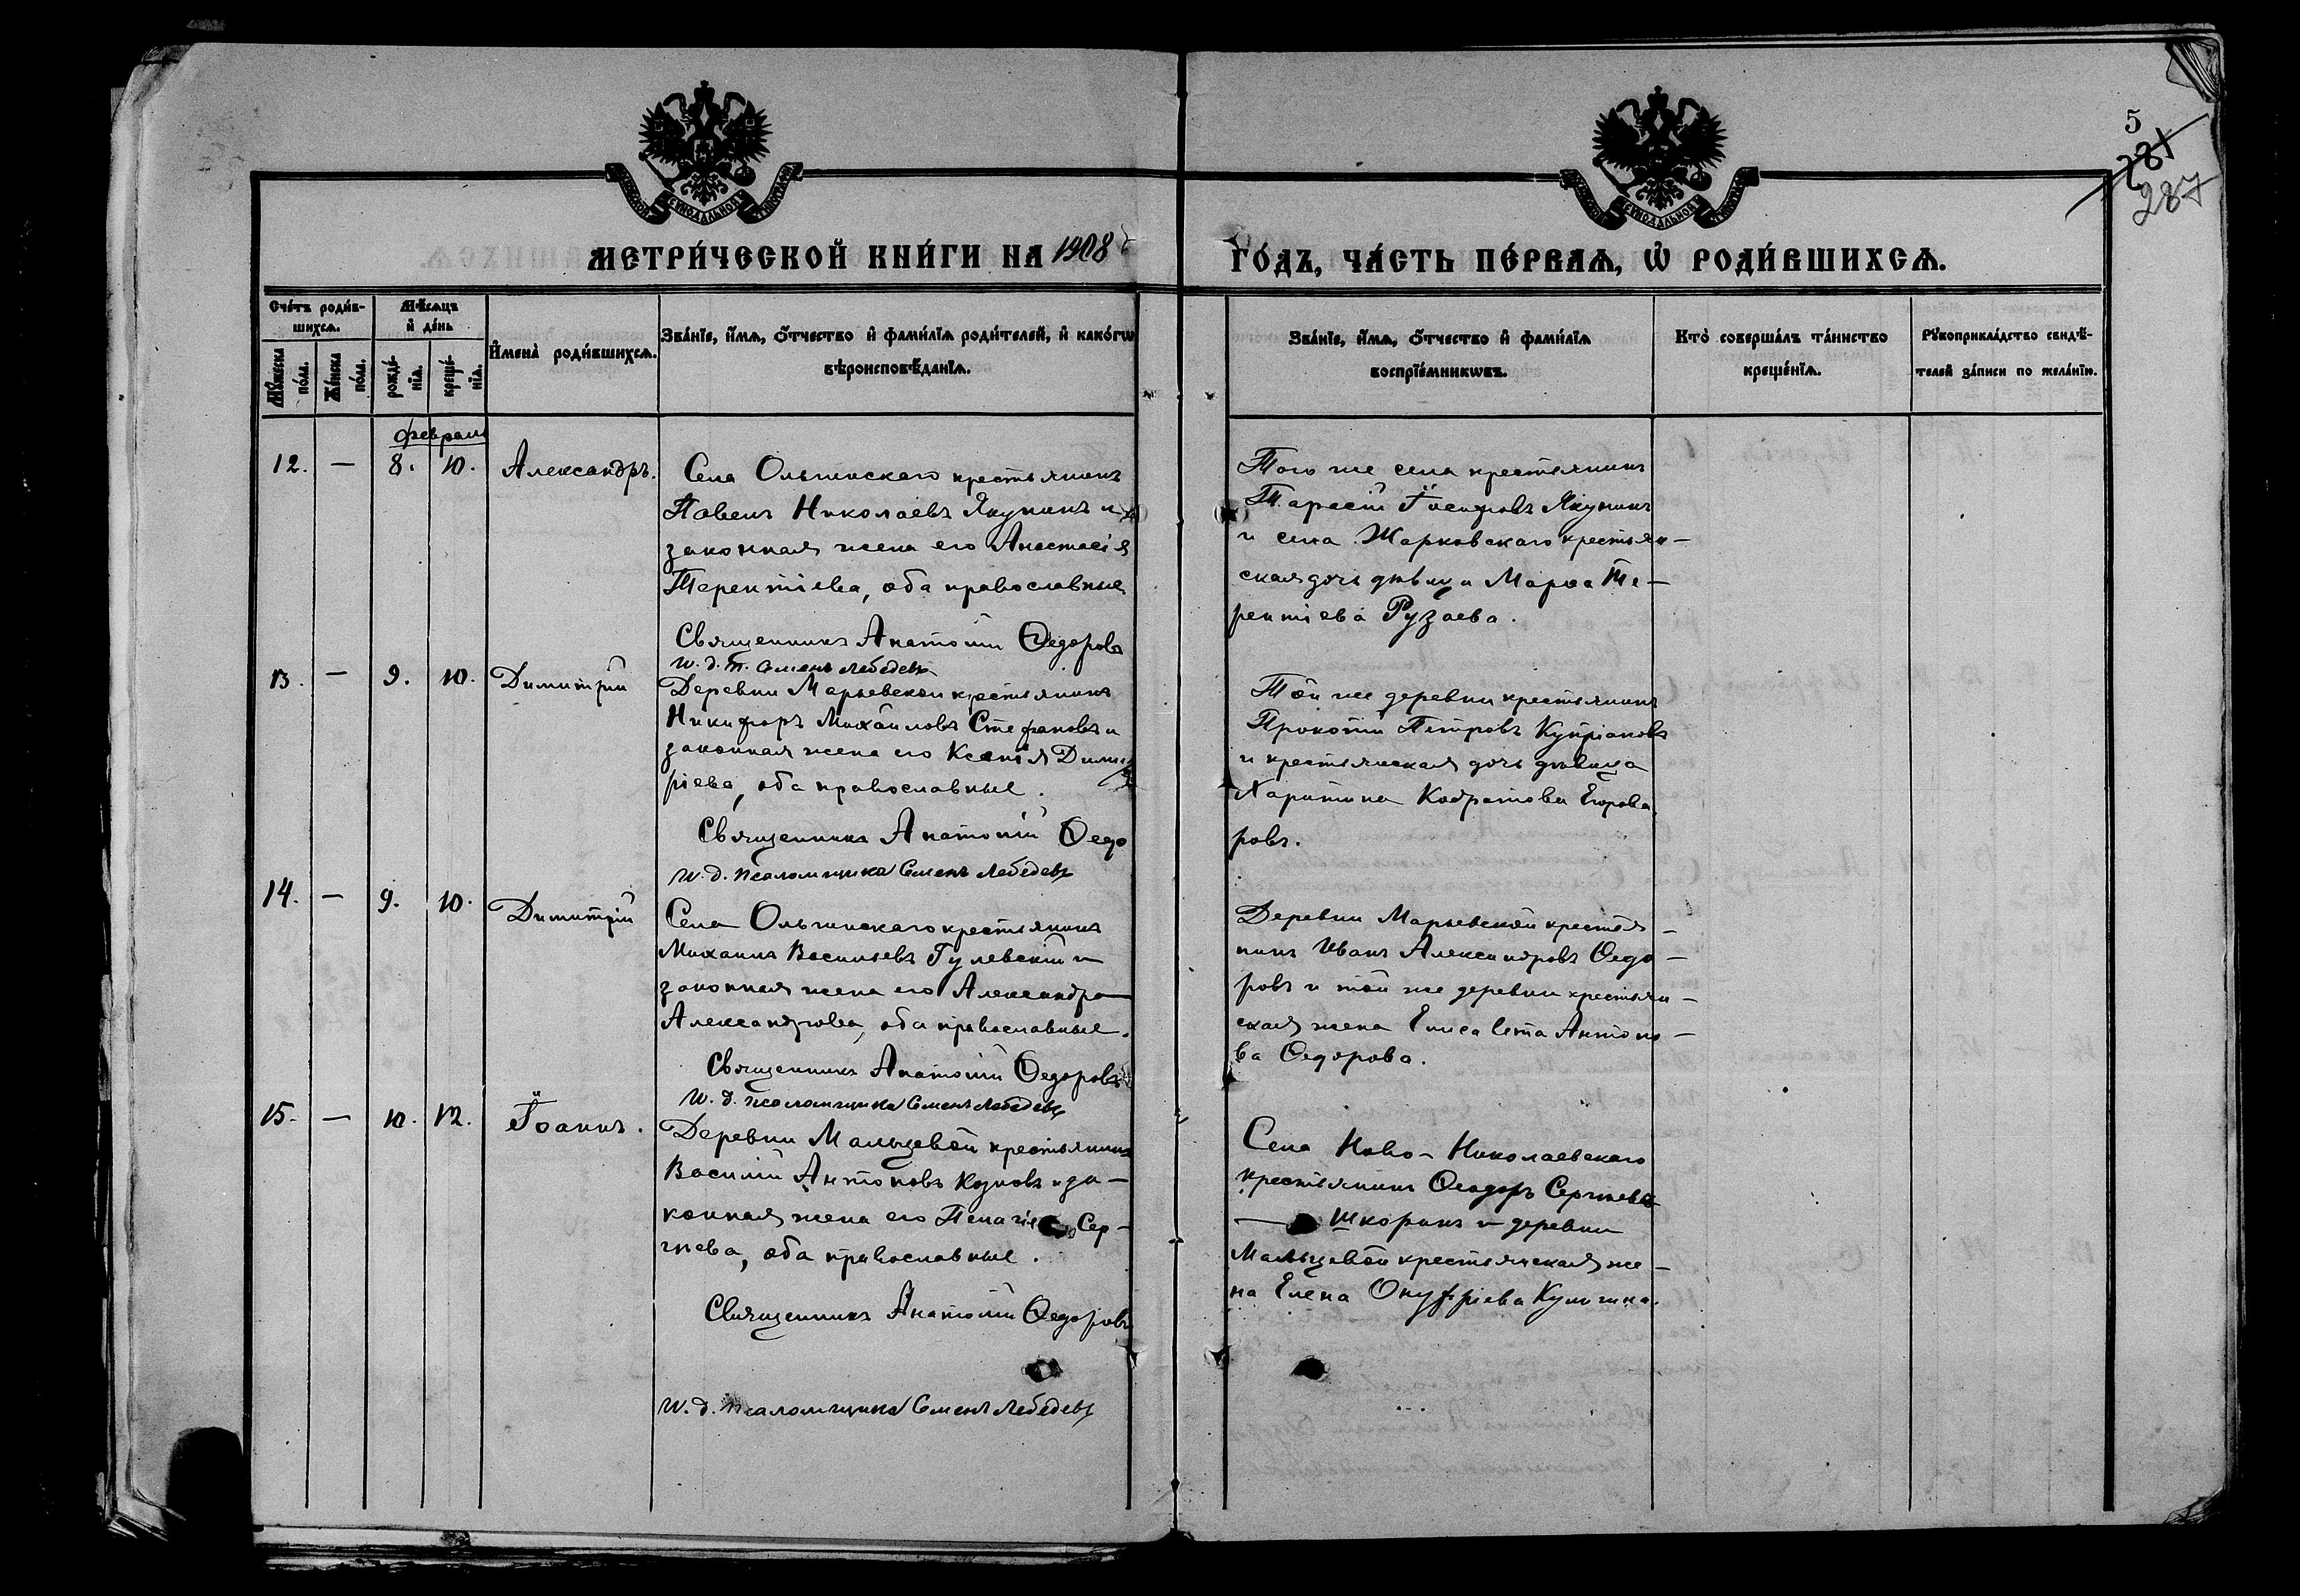 5
281
287
МЕТРИ́ЧЕСКОЙ КНИ́ГИ НА 1908
ГО́ДЪ, ЧА́СТЬ ПЕ́РВАѦ, Ѽ РОДИ́ВШИХСѦ.
Сче́тъ роди́в-
шихсѧ.
Мꙋ́жеска
по́ла.
Же́нска
по́ла.
Мѣ́сѧцъ
и҆ де́нь
рожде́-
нїѧ.
креще́-
нїѧ.
И҆мена̀ роди́вшихсѧ.
Зва́нїе, и҆́мѧ, ѻ҆́тчество и҆ фами́лїѧ роди́телей, и҆ како́гѡ
вѣроисповѣ́данїѧ.
Зва́нїе, и҆́мѧ, ѻ҆́тчество и҆ фами́лїѧ
воспрїе́мникѡвъ.
Кто̀ соверша́лъ та́инство
креще́нїѧ.
Рꙋкоприкла́дство свидѣ́-
телей за́писи по жела́нїю.
февраль
12. — 8. 10. Александръ.
Села Ольгинскаго крестьянинъ
Павелъ Николаевъ Якунинъ и
законная жена его Анастасія
Терентіева, оба православные
Священникъ Анатолій Ѳедоровъ
и. д. п. Семенъ Лебедевъ
Того же села крестьянинъ
Тарасій Іосифовъ Якунинъ
и села Жарковскаго крестьян-
ская дочь дѣвица Марѳа Те-
рентіева Рузаева.
13. — 9. 10. Димитрій
Деревни Марьевской крестьянинъ
Никифоръ Михаиловъ Стефановъ и
законная жена его Ксенія Димит
ріева, оба православные.
Священникъ Анатолій Ѳедо
и. д. псаломщика Семенъ Лебедевъ
Той же деревни крестьянинъ
Прокопій Петровъ Купріановъ
и крестьянская дочь дѣвица
Харитина Кодратова Егорова
ровъ.
14. — 9. 10. Димитрій
Села Ольгинскаго крестьянинъ
Михаилъ Васильевъ Гулевскій и
законная жена его Александра
Александрова, оба православные.
Священникъ Анатолій Ѳедоровъ
и. д. псаломщика Семенъ Лебедевъ
Деревни Марьевской крестья-
нинъ Иванъ Александровъ Ѳедо-
ровъ и той же деревни крестьян-
ская жена Елисавета Антоно-
ва Ѳедорова.
15. — 10. 12. Іоаннъ.
Деревни Мальцевой крестьянинъ
Василій Антоновъ и за-
конная жена его Пелагія Сер-
гѣева, оба православные.
Священникъ Анатолій Ѳедоровъ
и. д. псаломщика Семенъ Лебедевъ
Села Ново-Николаевскаго
крестьянинъ Ѳеодоръ Сергѣевъ
— Шкоринъ и деревни
Мальцевой крестьянская же-
на Елена Онуфріева Кульгина.